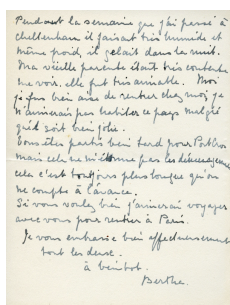 Pendant la semaine que j'ai passé à
cheltenham il faisait très humide et
même froid, il gelait dans la nuit.
Ma vieille parente était très contente
me voir, elle fut très aimable. Moi
je fus bien aise de rentrer chez moi je
n'aimerais pas habiter ce pays malgré
qu'il soit bien joli.
Vous êtes partis bien tard pour
mais cela ne m'étonne pas les déménagements
cela c'est toujours plus longue qu'on
ne compte à l'avance.
Si vous voulez bien j'aimerai voyager
avec vous pour rentrer à Paris.
Je vous embrasse bien affectueusement
tout les deux.
à bientot.
Berthe.